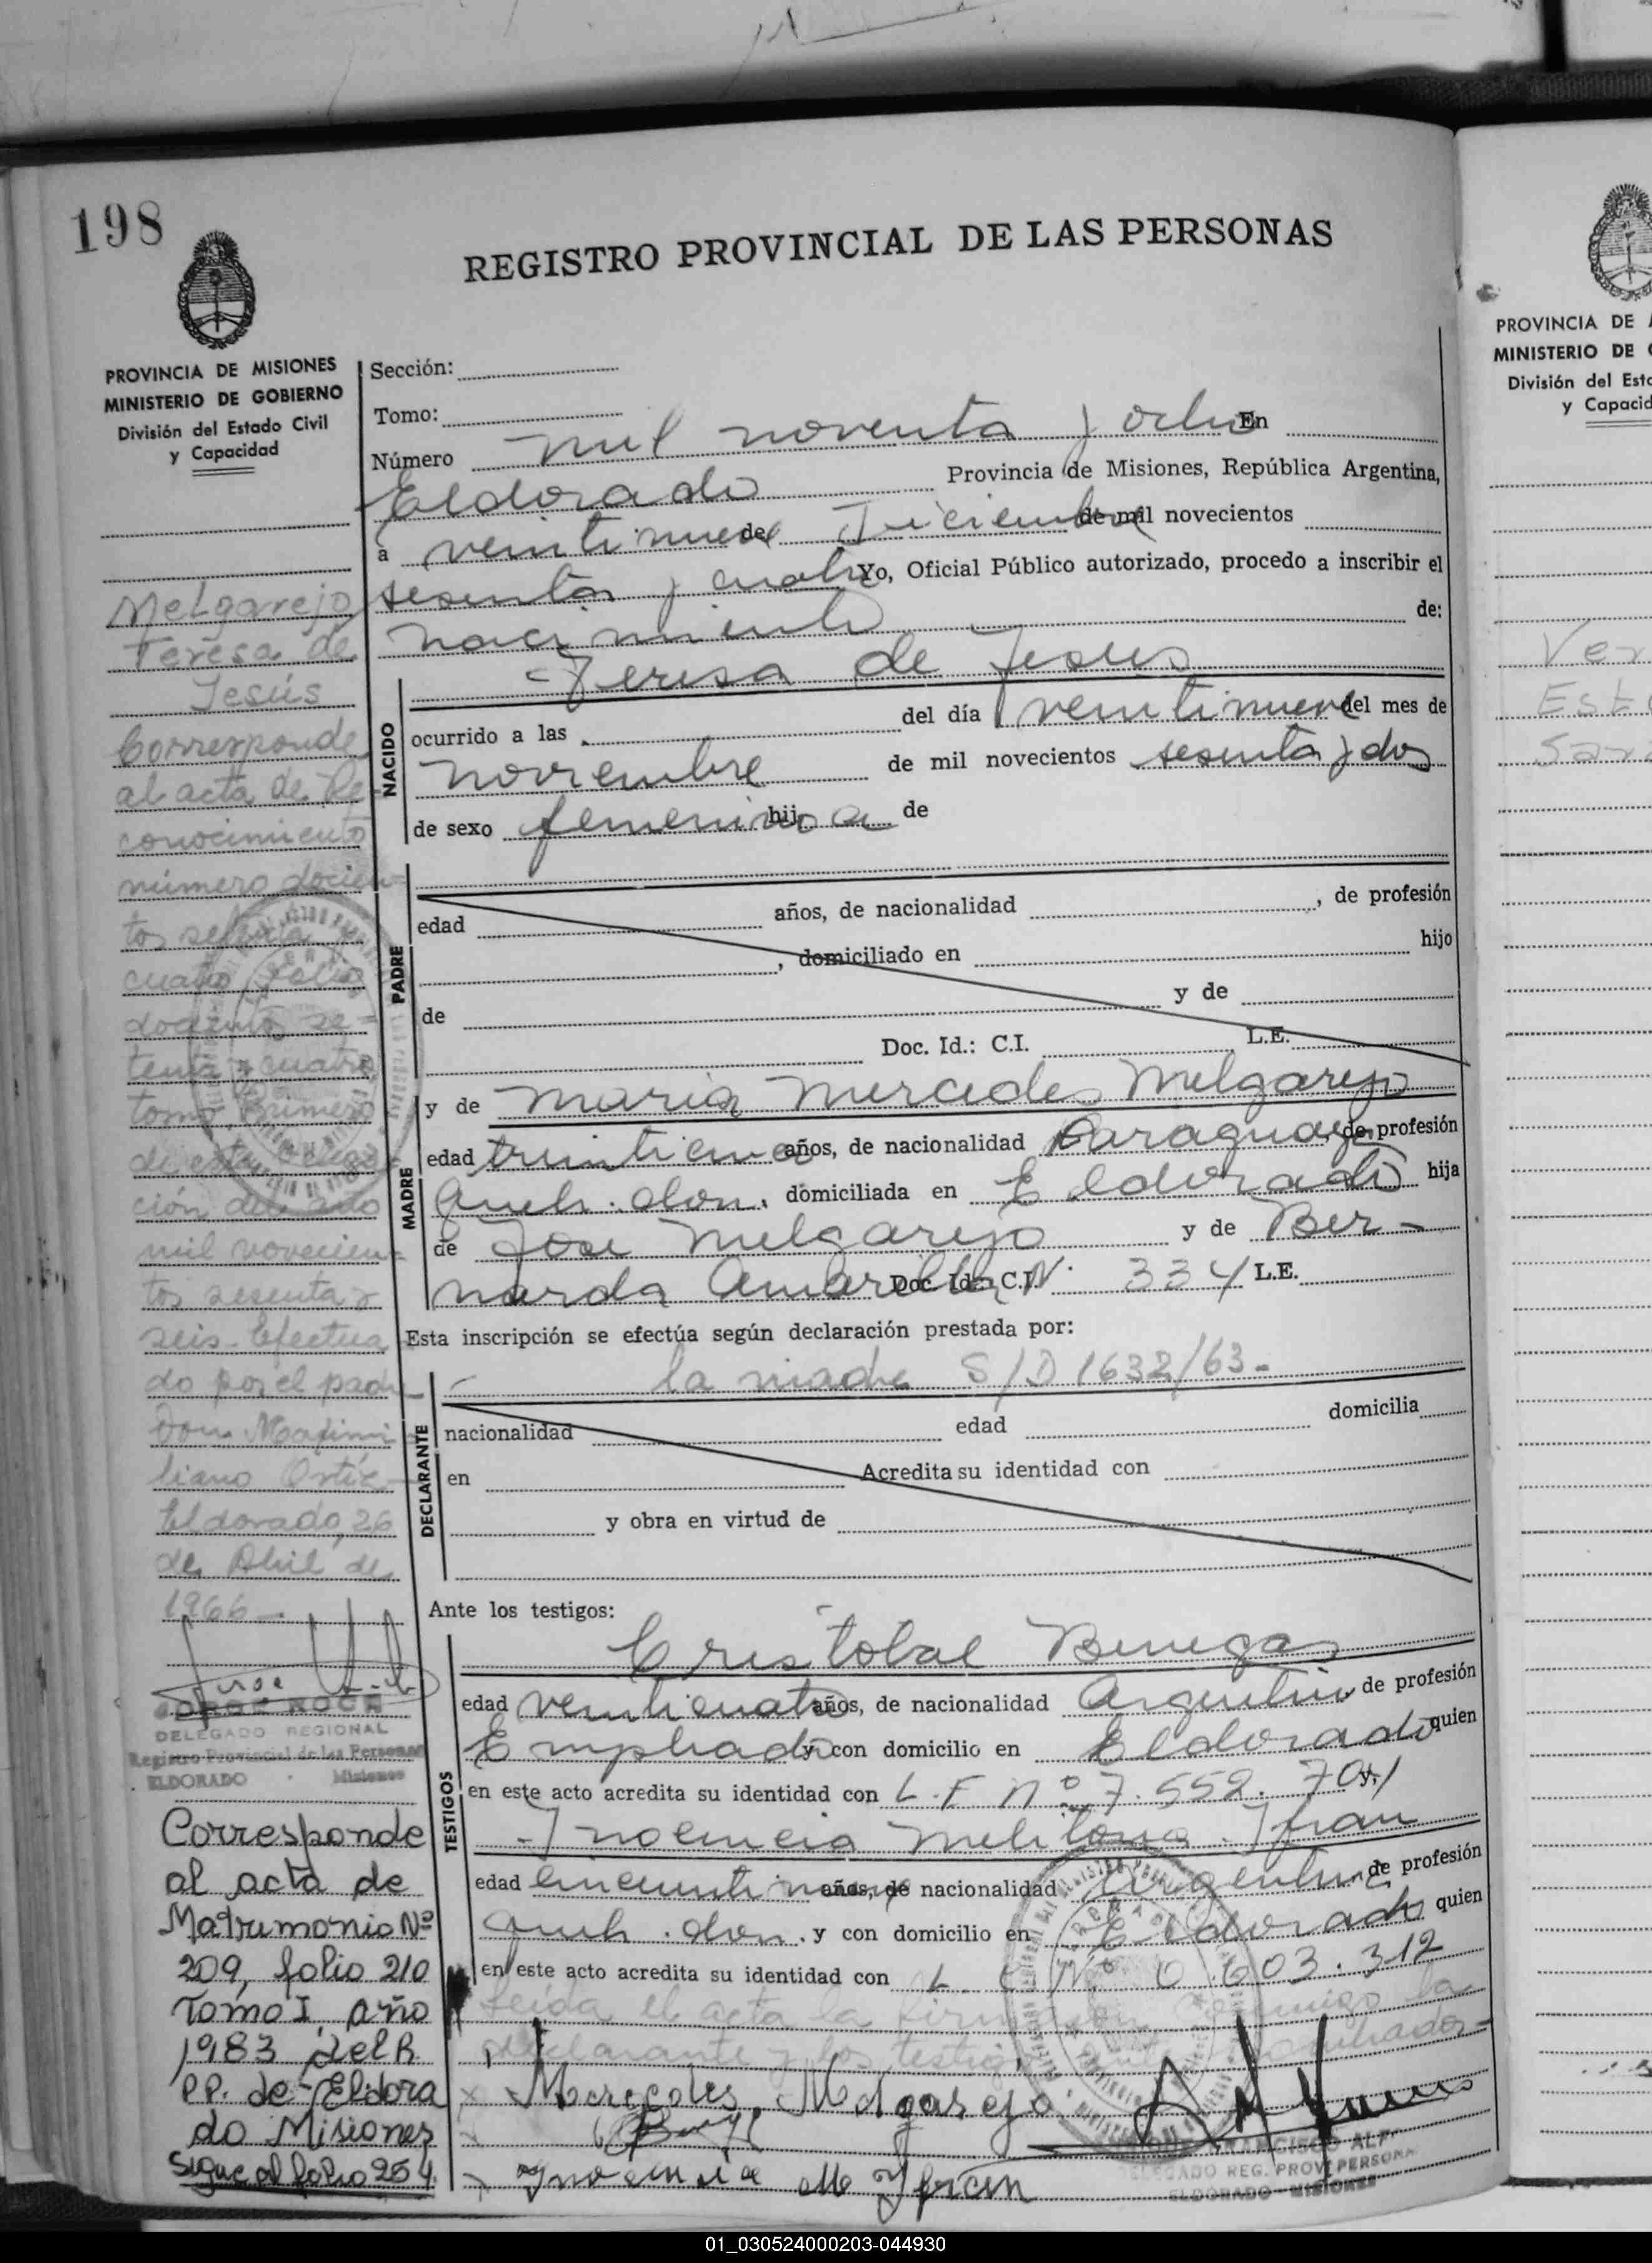 198
REGISTRO PROVINCIAL DE LAS PERSONAS
PROVINCIA DE MISIONES
MINISTERIO DE GOBIERNO
División del Estado Civil
y Capacidad
Melgarejo
Teresa de
Jesús
Corresponde
al acta de Re-
conocimiento
número docien-
tos setenta
cuatro, folio
docientos se-
tenta y cuatro,
tomo Primero
de esta Delega-
ción del año
mil novecien-
tos sesenta y
seis. Efectua
do por el padre
Don Maximi
liano Ortíz
Eldorado, 26
de Abril de
1966.-
JORGE ROCH
DELEGADO REGIONAL
Registro Provincial de las Personas
ELDORADO - Misiones
Corresponde
al acta de
Matrimonio Nº
209, folio 210
Tomo I, año
1983 del R.
P.P. de Eldora
do Misiones
Sigue al folio 254.
Sección:
Tomo:
Número mil noventa y ocho En
Eldorado Provincia de Misiones, República Argentina,
a veintinueve de Diciembre de mil novecientos
sesenta y cuatro Yo, Oficial Público autorizado, procedo a inscribir el
nacimiento de:
Teresa de Jesus
NACIDO
ocurrido a las del día veintinueve del mes de
noviembre de mil novecientos sesenta y dos
de sexo femenino hij a de
PADRE
edad años, de nacionalidad , de profesión
, domiciliado en hijo
de y de
Doc. Id.: C.I. L.E.
MADRE
y de Maria Mercedes Melgarejo
edad años, de nacionalidad Paraguaya, de profesión
Queh. dom. domiciliada en Eldorado hija
de Jose Melgarejo y de Ber-
narda Amarilla Doc. Id.: C.I. Nº 334 L.E.
Esta inscripción se efectúa según declaración prestada por:
la madre S/D 1632/63-
DECLARANTE
nacionalidad edad domicilia
en Acredita su identidad con
y obra en virtud de
Ante los testigos:
TESTIGOS
Cristobal Benegas
edad venticuatro años, de nacionalidad Argentino, de profesión
Empleado y con domicilio en Eldorado quien
en este acto acredita su identidad con L.E. nº 7.552.701 y,
Inocencia Melitona Ifran
edad años, de nacionalidad Argentina de profesión
queh. dom. y con domicilio en Eldorado quien
en este acto acredita su identidad con L. C. Nº 0.603.312
Leida el acta la firman conmigo la
declarante y los testigos
Mercedes Melgarejo
Inocencia M Yfran
FRANCISCO
DELEGADO REG. PROV. PERSONAS
ELDORADO - MISIONES
PROVINCIA DE
MINISTERIO DE
División del Esta
y Capacid
Ver
Est
San
01_030524000203-044930